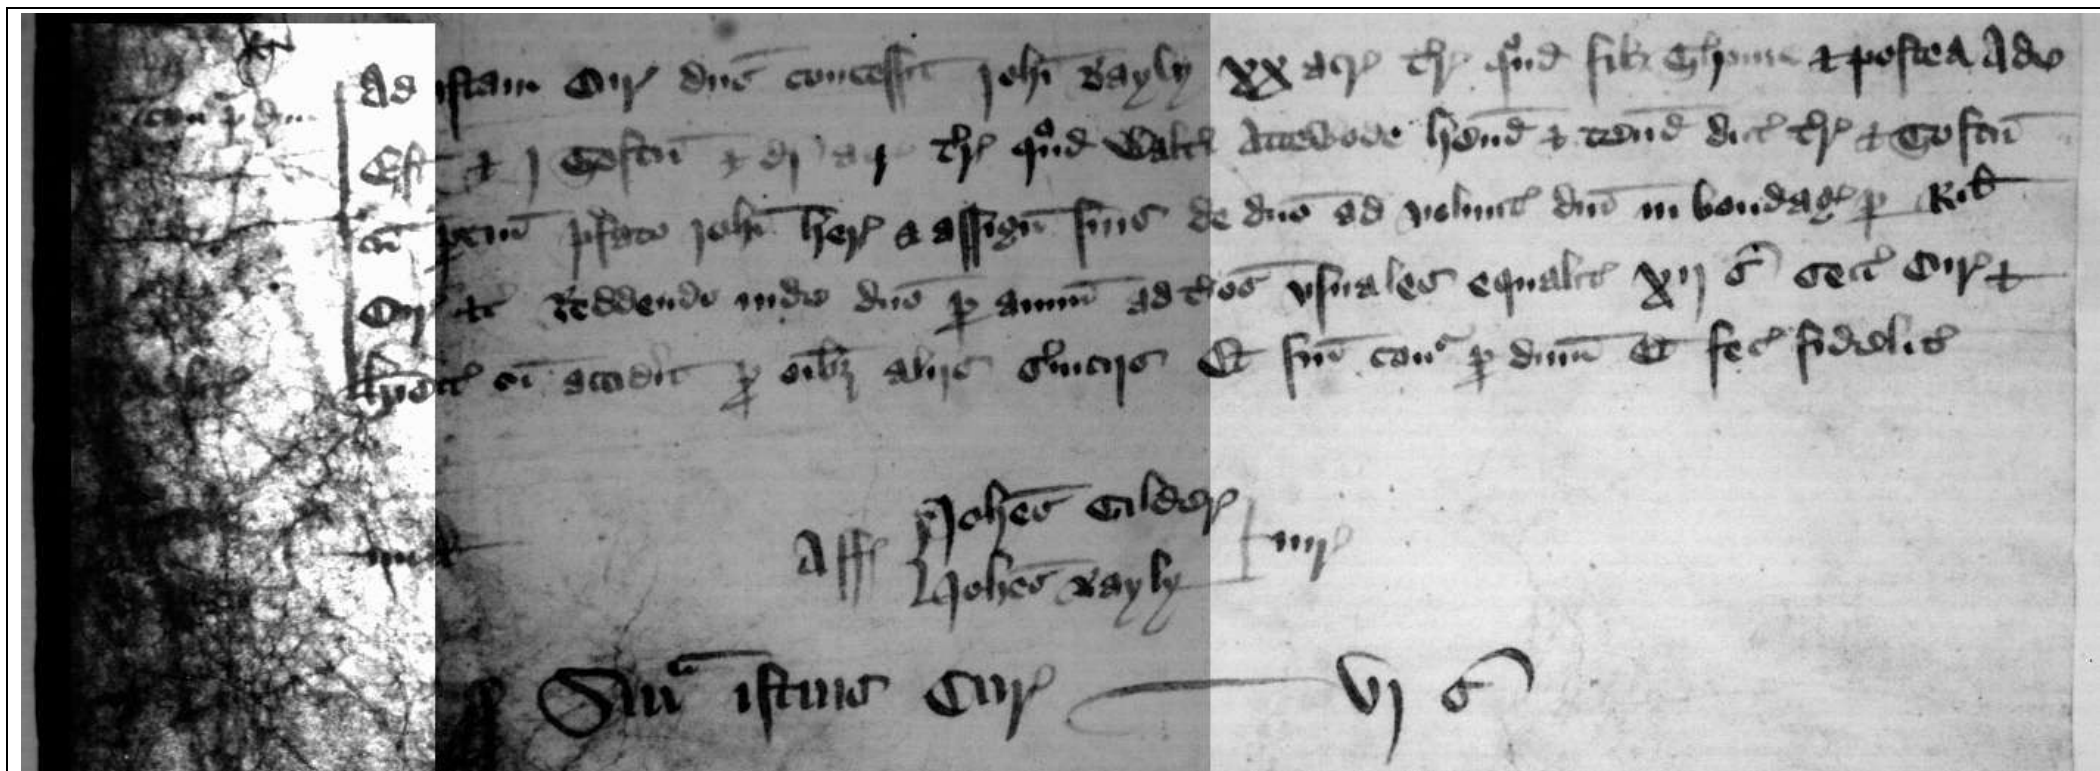 Ad istam Cur dns concessit Johi Bayly xx acr tr qnd fuit Thome & postea Ade
Est & j Toftu & di acr tr qnd Walt Attewode hend & tend dict tr & Toftu
cu ptin pfato Johi hered & assign suis de dno ad volunt dni in bondag p Rod
Cur &c Reddendo inde dno p annu ad tios usuales equalit xij s sect Cur &
cu accidit p oibz aliis sviciis Et fin conc p dnm Et fec fidelit
con p dm
Johes Gilder
Aff
Johes Bayly
Sma istius Cur vj s